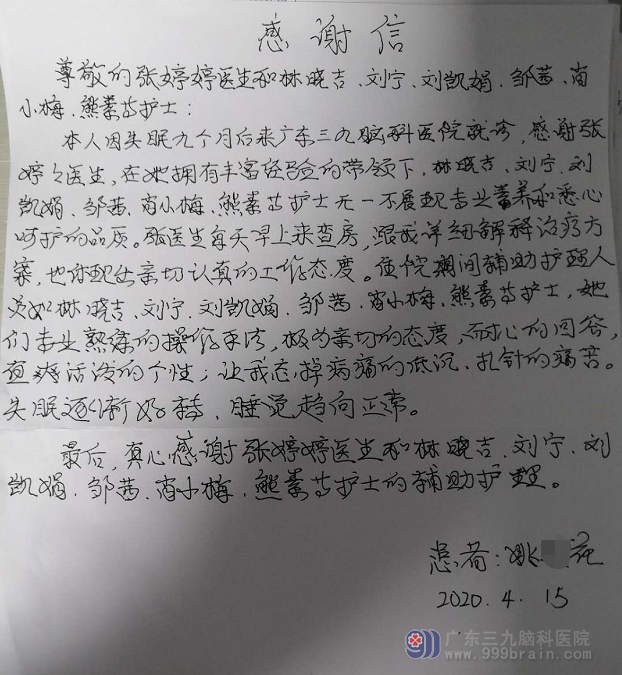 感谢信
尊敬的张婷婷医生和林晓吉、刘宁、刘凯娟、邹茜、肖
小梅、熊素芬护士:
本人因失眠九个月后来广东三九脑科医院就诊,感谢张
婷々医生,在她拥有丰富经验的带领下,林晓吉、刘宁、刘
凯娟、邹茜、肖小梅、熊素芬护士无一不展现专业素养和悉心
呵护的品质。张医生每天早上来查房,跟我详细解释治疗方
案,也体现出亲切认真的工作态度。住院期间辅助护理人
员如林晓吉、刘宁、刘凯娟、邹茜、肖小梅、熊素芬护士,她
们专业熟练的操作手法,极为亲切的态度,耐心的回答,
直爽活泼的个性;让我忘掉病痛的低沉、扎针的痛苦。
失眠逐渐好转,睡觉趋向正常。
最后,真心感谢张婷婷医生和林晓吉、刘宁、刘
凯娟、邹茜、肖小梅、熊素芬护士的辅助护理。
患者:姚 苑
2020.4.15
广东三九脑科医院
www.999brain.com